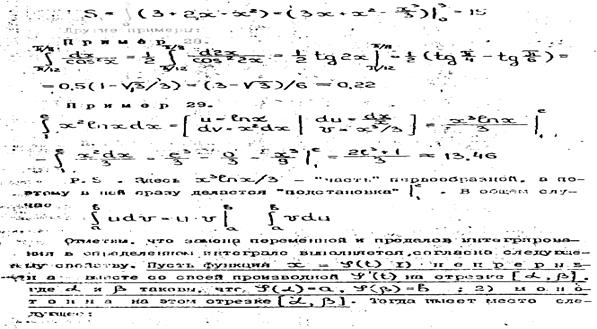 S = ∫ (3 + 2x - x²) = (3x + x² - x³/3)|₀ = 15
Другие примеры:
Пример 28.
∫_{π/12}^{π/8} dx/cos²x = 1/2 ∫_{π/12}^{π/8} d2x/cos²2x = 1/2 tg2x |_{π/12}^{π/8} = 1/2 (tg π/4 - tg π/6) =
= 0,5(1 - √3/3) = (3 - √3)/6 = 0,22
Пример 29.
∫₁^e x²lnxdx = [u = lnx | du = dx/x
dv = x²dx | v = x³/3] = x³lnx/3 |₁^e
- ∫₁^e x²dx/3 = e³/3 - 0/3 - x³/9 |₁^e = 2e³+1/ = 13.46
P.S. Здесь x³lnx/3 - "часть" первообразной, а по-
этому в ней сразу делается "подстановка" |₁^e . В общем слу-
чае
∫_a^b udv = u·v |_a^b ∫_a^b vdu
Отметим, что замена переменной и пределов интегрирова-
ния в определенном интеграле выполняется, согласно следующе-
му свойству. Пусть функция x = φ(t) 1) непрерыв-
на вместе со своей производной φ'(t) на отрезке [α, β],
где α и β таковы, что φ(α) = a, φ(β) = b ; 2) моно-
тонна на этом отрезке [α, β]. Тогда имеет место сле-
дующее: